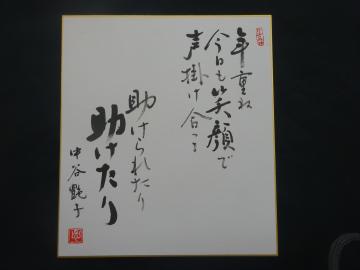 年重ね
今日も笑顔で
声掛け合って
助けられたり
助けたり
中谷艶子